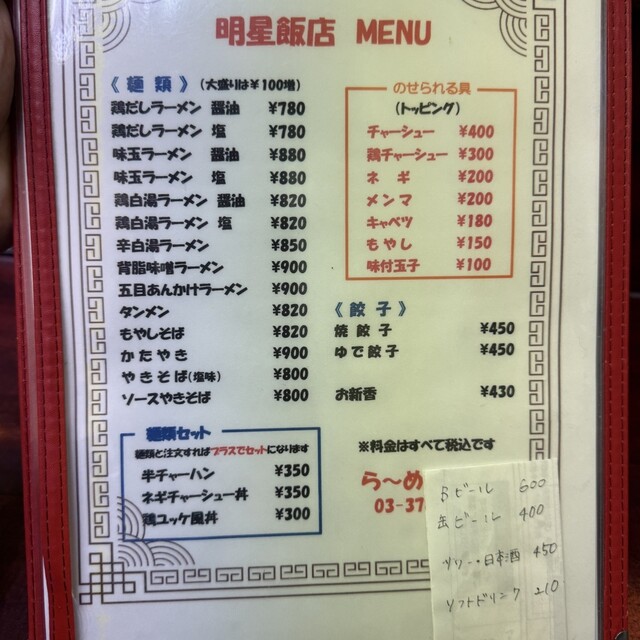 明星飯店 MENU
《 麺 類 》 (大盛りは¥100増)
鶏だしラーメン 醤油 ¥780
鶏だしラーメン 塩 ¥780
味玉ラーメン 醤油 ¥880
味玉ラーメン 塩 ¥880
鶏白湯ラーメン 醤油 ¥820
鶏白湯ラーメン 塩 ¥820
辛白湯ラーメン ¥850
背脂味噌ラーメン ¥900
五目あんかけラーメン ¥900
タンメン ¥820
もやしそば ¥820
かたやき ¥900
やきそば(塩味) ¥800
ソースやきそば ¥800
麺類セット
麺類と注文すればプラスでセットになります
半チャーハン ¥350
ネギチャーシュー丼 ¥350
鶏ユッケ風丼 ¥300
のせられる具
(トッピング)
チャーシュー ¥400
鶏チャーシュー ¥300
ネ ギ ¥200
メンマ ¥200
キャベツ ¥180
もやし ¥150
味付玉子 ¥100
《 餃 子 》
焼 餃 子 ¥450
ゆで餃子 ¥450
お新香 ¥430
※料金はすべて税込です
ら〜め
03-37
ビール 600
缶ビール 400
サワー・日本酒 450
ソフトドリンク 210